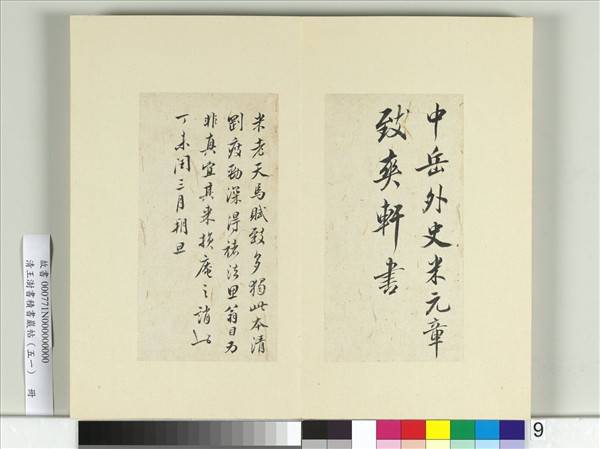 中岳外史米元章
致爽軒書
米老天馬賦致多獨此本清
劉疲勁深得褚法思翁目為
非真宜其來損庵之誚也
丁未閏三月朔旦
故書 000771N000000000
清王澍書積書巖帖(五一) 冊
9